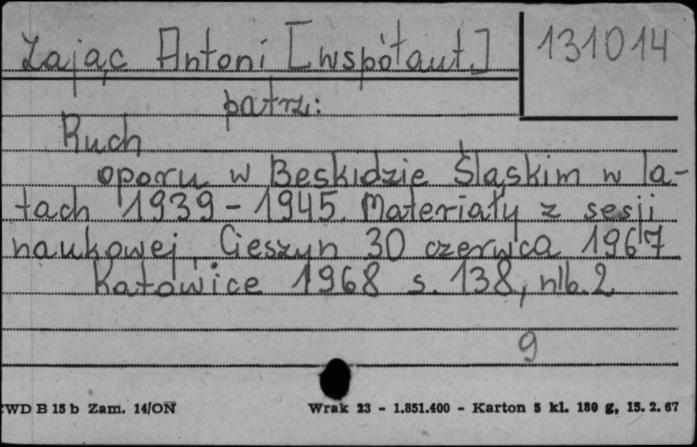 Zając Antoni [współaut.]
131014
patrz:
Ruch
oporu w Beskidzie Śląskim w la-
tach 1939-1945. Materiały z sesji
naukowej, Cieszyn 30 czerwca 1967
Katowice 1968 s. 138, nlb. 2
9
WD B 15 b Zam. 14/ON Wrak 23 - 1.851.400 - Karton 5 kl. 180 g, 15. 2. 67